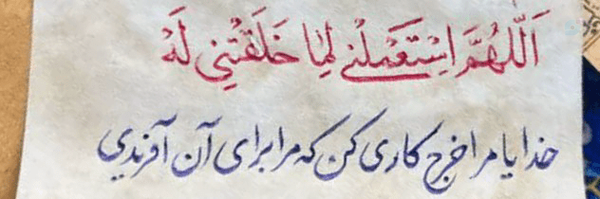 اَللّهُمَّ اِسْتَعْمِلْنی لِما خَلَقْتَنی لَهُ
خدایا مرا خرج کاری کن که مرا برای آن آفریدی